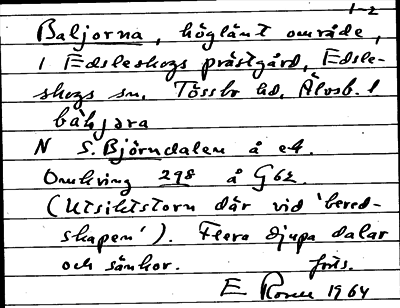 1-2
Baljorna, höglänt område,
i Edsleskogs prästgård, Edsle-
skogs sn. Tössbo hd. Älvsb. l
bàljɔra
N S. Björndalen å ek.
Omkring 298 å G62.
(Utsiktstorn där vid 'bered-
skapen'). Flera djupa dalar
och sänkor. forts.
E Rosen 1964